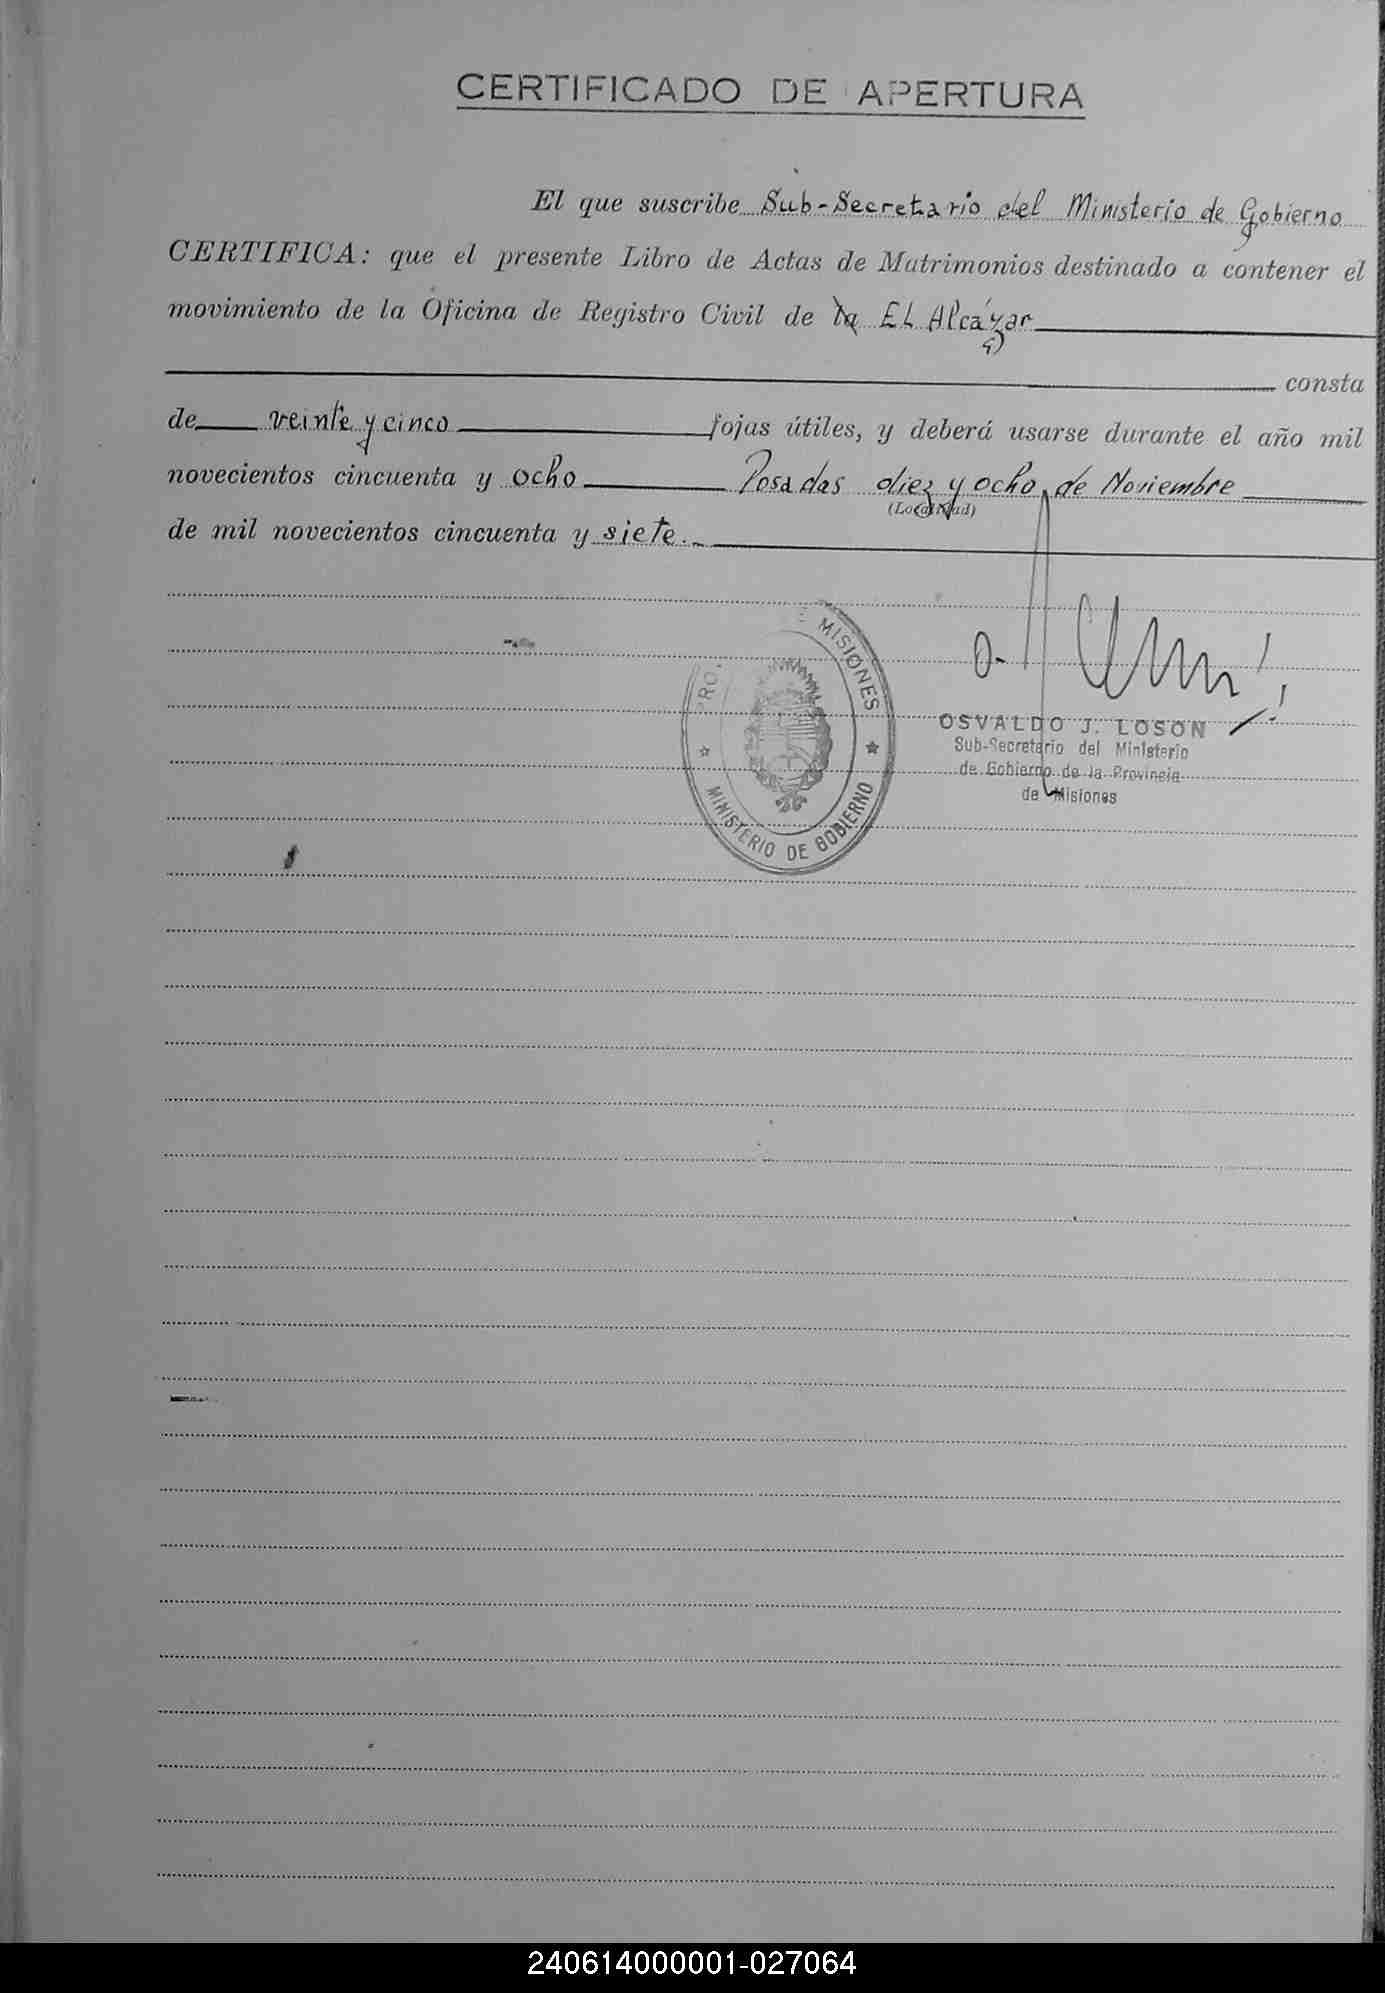 CERTIFICADO DE APERTURA
El que suscribe Sub-Secretario del Ministerio de Gobierno
CERTIFICA: que el presente Libro de Actas de Matrimonios destinado a contener el
movimiento de la Oficina de Registro Civil de la EL Alcázar
consta
de veinte y cinco fojas útiles, y deberá usarse durante el año mil
novecientos cincuenta y ocho Posadas diez y ocho de Noviembre
(Localidad)
de mil novecientos cincuenta y siete.
MISIONES
MINISTERIO DE GOBIERNO
OSVALDO J. LOSON
Sub-Secretario del Ministerio
de Gobierno de la Provincia
de Misiones
240614000001-027064